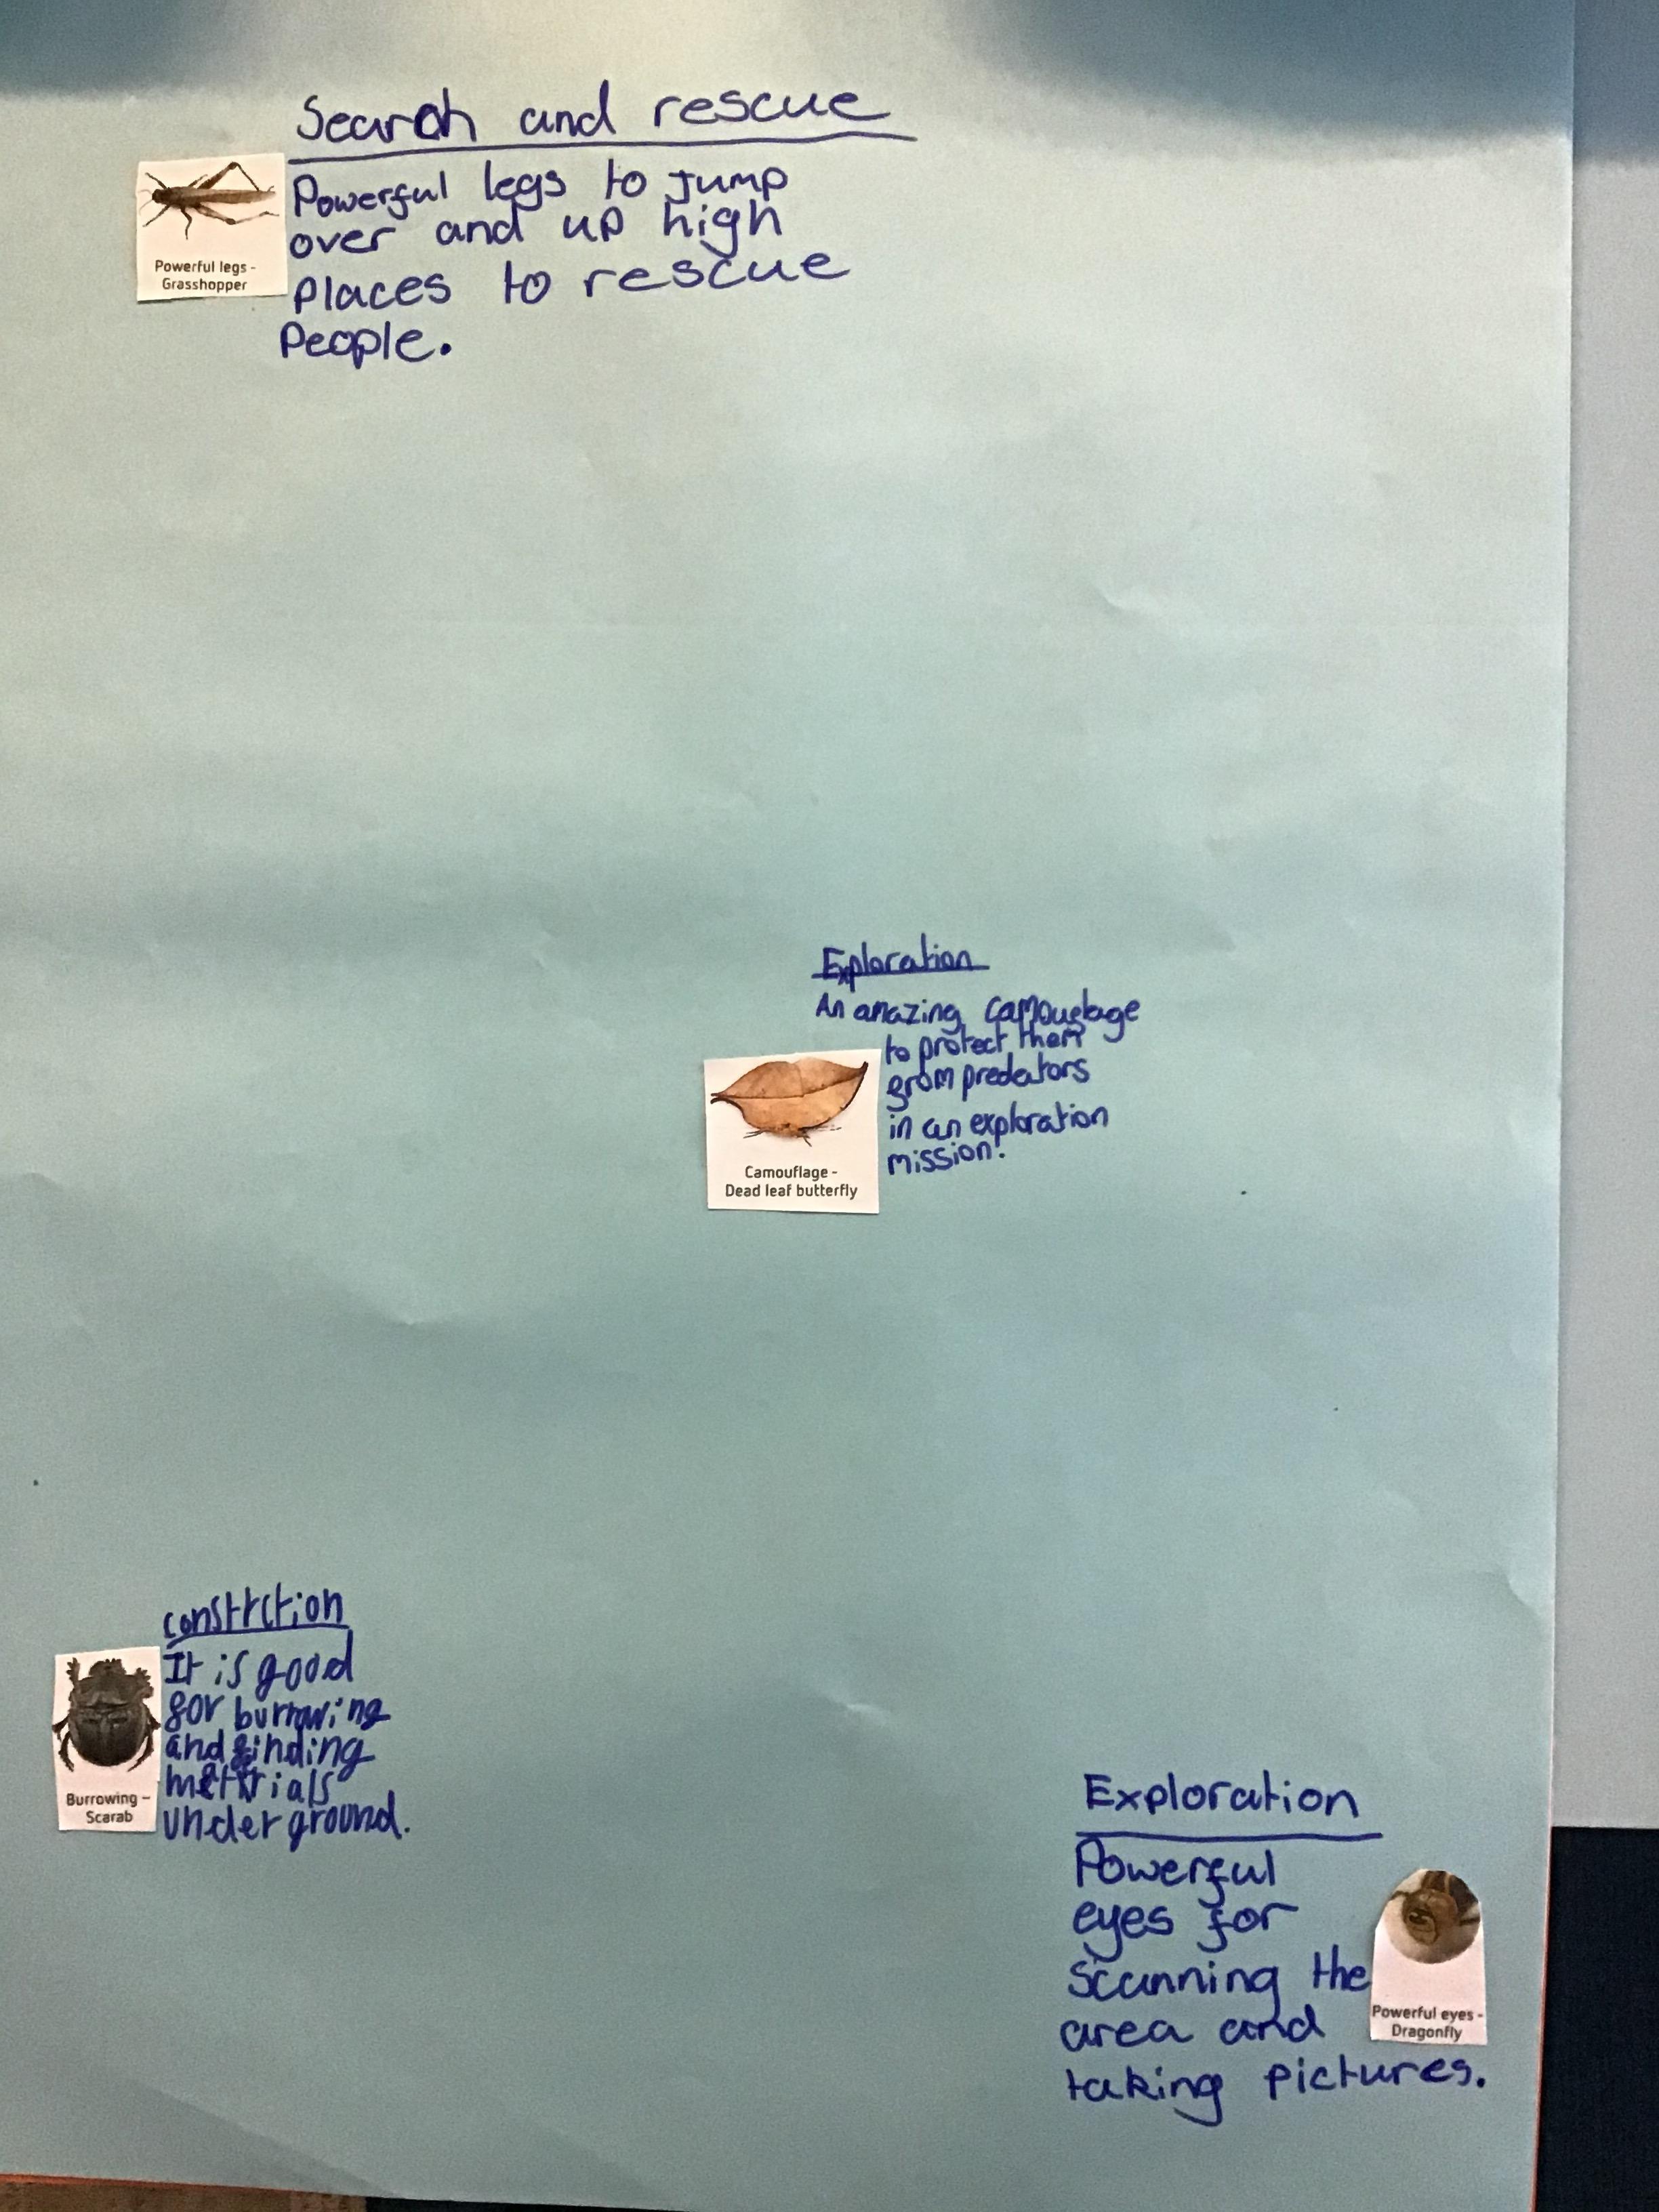 Search and rescue
Powerful legs to jump
over and up high
places to rescue
People.
Powerful legs -
Grasshopper
Exploration
An amazing camouelage
to protect them
from predators
in an exploration
mission.
Camouflage -
Dead leaf butterfly
constrction
It is good
for burrowing
and finding
metirials
underground.
Burrowing -
Scarab
Exploration
Powerful
eyes for
scanning the
area and
taking pictures.
Powerful eyes -
Dragonfly